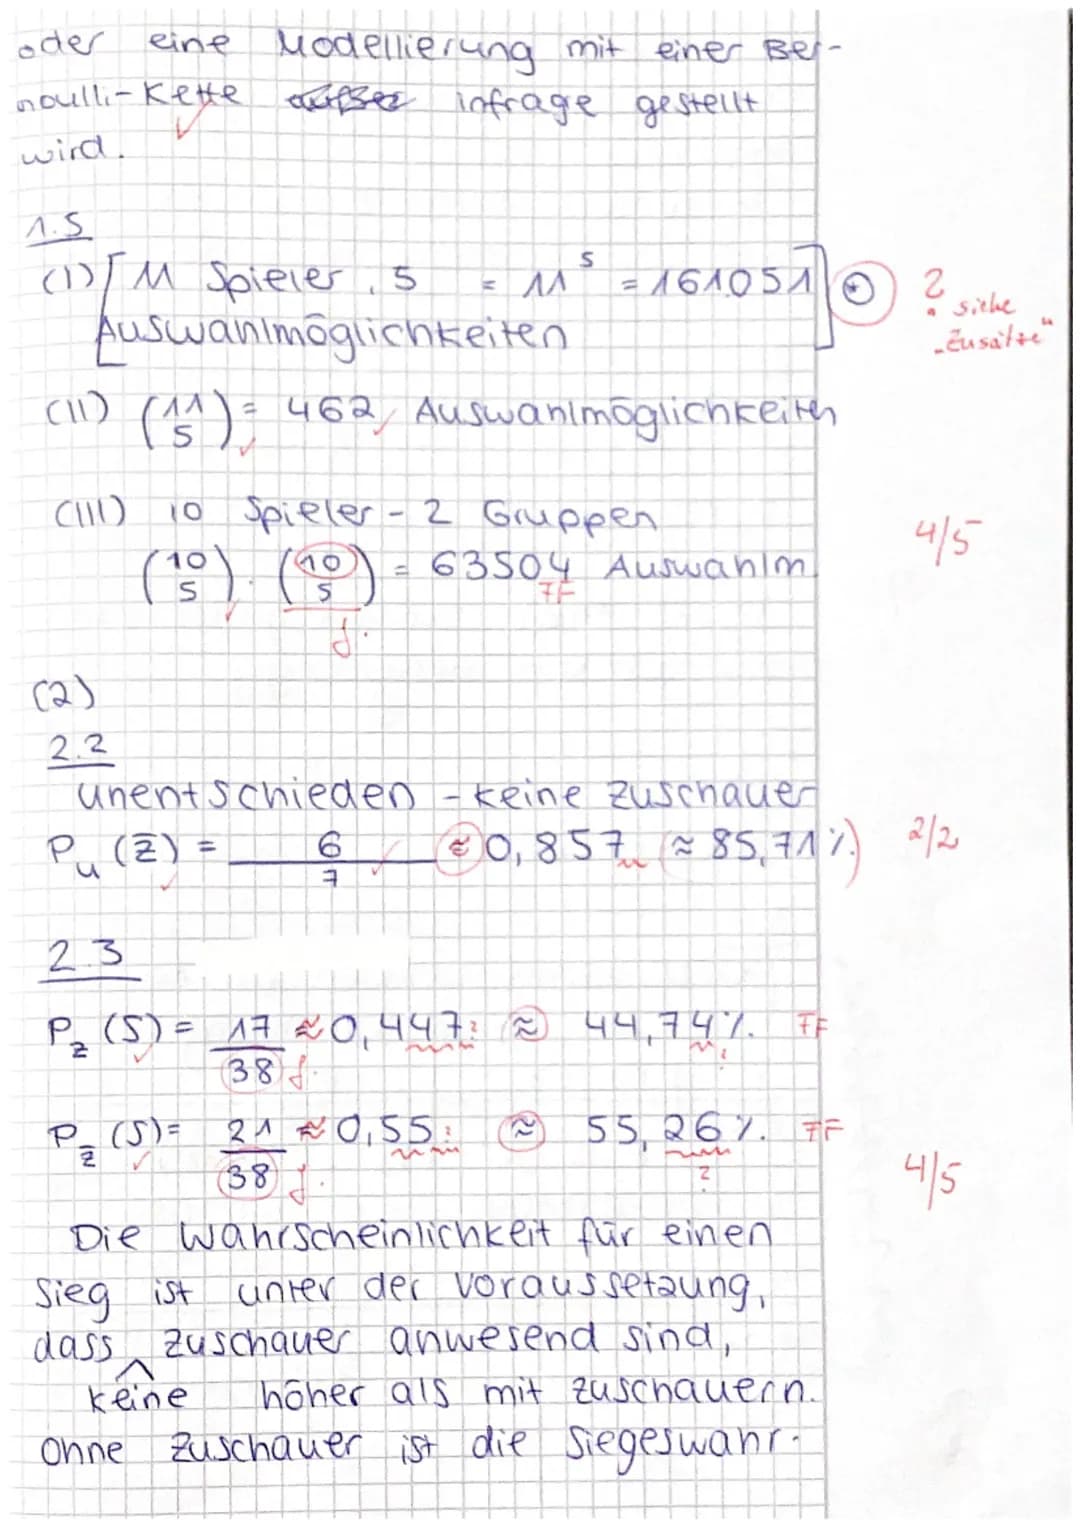 oder eine Modellierung mit einer Ber-
noulli-Kette infrage gestellt
wird.
1.5
(I) [11 Spieler, 5 = 11⁵ = 161051] ?
Auswahlmöglichkeiten siehe "Zusätze"
(II) (11 5) = 462 Auswahlmöglichkeiten
(III) 10 Spieler - 2 Gruppen
(10 5) · (10 5) = 63504 Auswahlm. 4/5
FF
f.
(2)
2.2
unentschieden - keine Zuschauer
P_u (Z̄) = 6/7 ≈ 0,857 (≈ 85,71%) 2/2
2.3
P_z (S) = 17/38 ≈ 0,447 ≈ 44,74%. FF
f.
P_z̄ (S) = 21/38 ≈ 0,55 ≈ 55,26%. FF
f. ? 4/5
Die Wahrscheinlichkeit für einen
Sieg ist unter der Voraussetzung,
dass Zuschauer anwesend sind,
keine höher als mit Zuschauern.
Ohne Zuschauer ist die Siegeswahr-